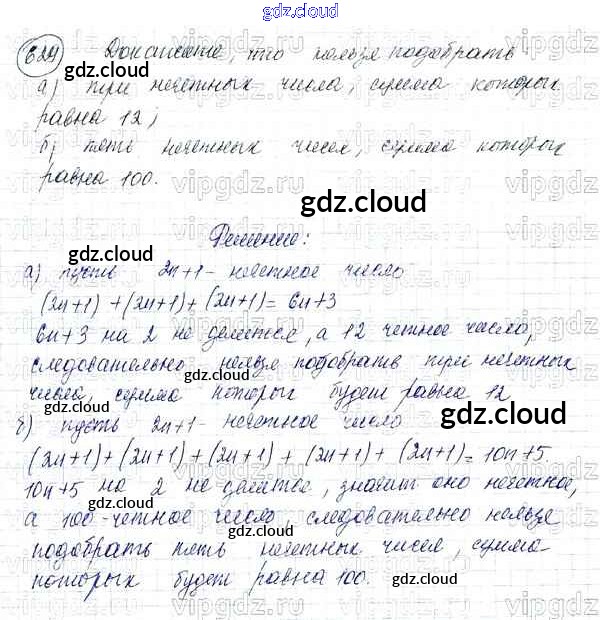 gdz.cloud
629 Докажите, что нельзя подобрать
а) три нечетных числа, сумма которых
равна 12;
б) пять нечетных чисел, сумма которых
равна 100.
Решение:
а) пусть 2n+1 - нечетное число
(2n+1) + (2n+1) + (2n+1) = 6n+3
6n+3 на 2 не делится, а 12 четное число,
следовательно нельзя подобрать три нечетных
числа, сумма которых будет равна 12
б) пусть 2n+1 - нечетное число
(2n+1) + (2n+1) + (2n+1) + (2n+1) + (2n+1) = 10n+5.
10n+5 на 2 не делится, значит оно нечетное,
а 100-четное число, следовательно нельзя
подобрать пять нечетных чисел, сумма
которых будет равна 100.